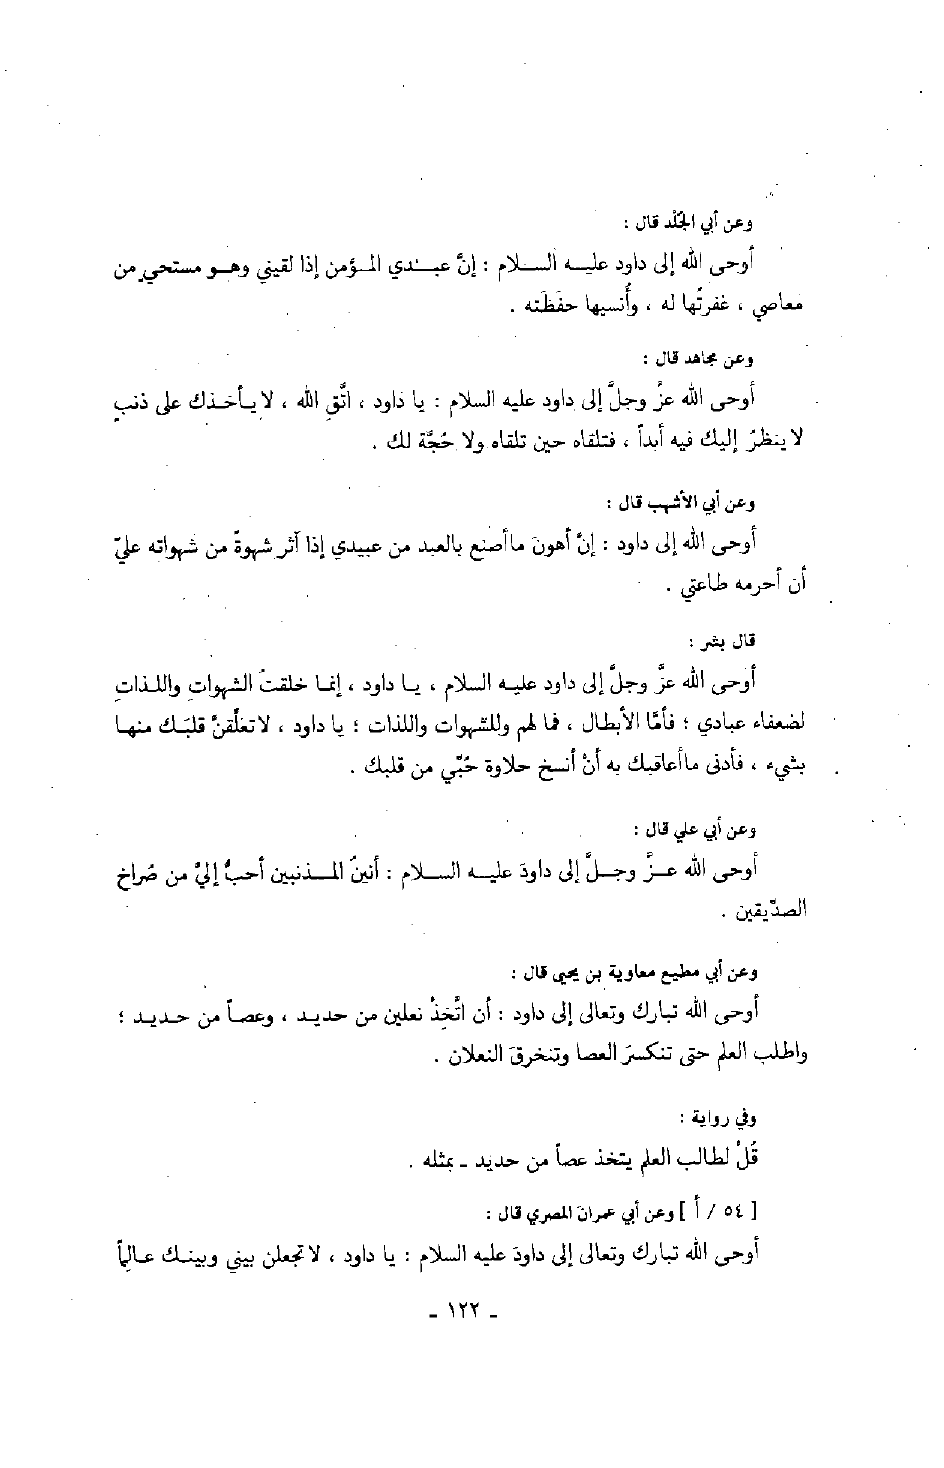 وعن أبي الجَلْد قال :
أوحى الله إلى داود عليه السلام : إنَّ عبدي المؤمن إذا لقيني وهو مستحيٍ من
معاصي ، غفرتُها له ، وأُنسيها حفَظَته .
وعن مجاهد قال :
أوحى الله عزَّ وجلَّ إلى داود عليه السلام : يا داود ، اتَّقِ الله ، لا يأخذك على ذنبٍ
لا ينظرُ إليك فيه أبداً ، فتلقاه حين تلقاه ولا حُجَّة لك .
وعن أبي الأشهب قال :
أوحى الله إلى داود : إنَّ أهونَ ما أصنع بالعبد من عبيدي إذا آثر شهوةً من شهواته عليّ
أن أحرمه طاعتي .
قال بشر :
أوحى الله عزَّ وجلَّ إلى داود عليه السلام ، يا داود ، إنما خلقتُ الشهواتِ واللذاتِ
لضعفاء عبادي ؛ فأمَّا الأبطال ، فما لهم وللشهوات واللذات ؛ يا داود ، لا تعلِّقنَّ قلبَك منها
بشيء ، فأدنى ما أعاقبك به أنْ أنسخ حلاوة حُبّي من قلبك .
وعن أبي علي قال :
أوحى الله عزَّ وجلَّ إلى داودَ عليه السلام : أنينُ المذنبين أحبُّ إليَّ من صُراخ
الصدّيقين .
وعن أبي مطيع معاوية بن يحيى قال :
أوحى الله تبارك وتعالى إلى داود : أن اتَّخِذْ نعلين من حديد ، وعصاً من حديد ؛
واطلب العلم حتى تنكسرَ العصا وتنخرقَ النعلان .
وفي رواية :
قُلْ لطالب العلم يتخذ عصاً من حديد ـ بمثله .
[ ٥٤ / أ ] وعن أبي عمرانَ المصري قال :
أوحى الله تبارك وتعالى إلى داودَ عليه السلام : يا داود ، لا تجعلن بيني وبينك عالِماً
ـ ١٢٢ ـ